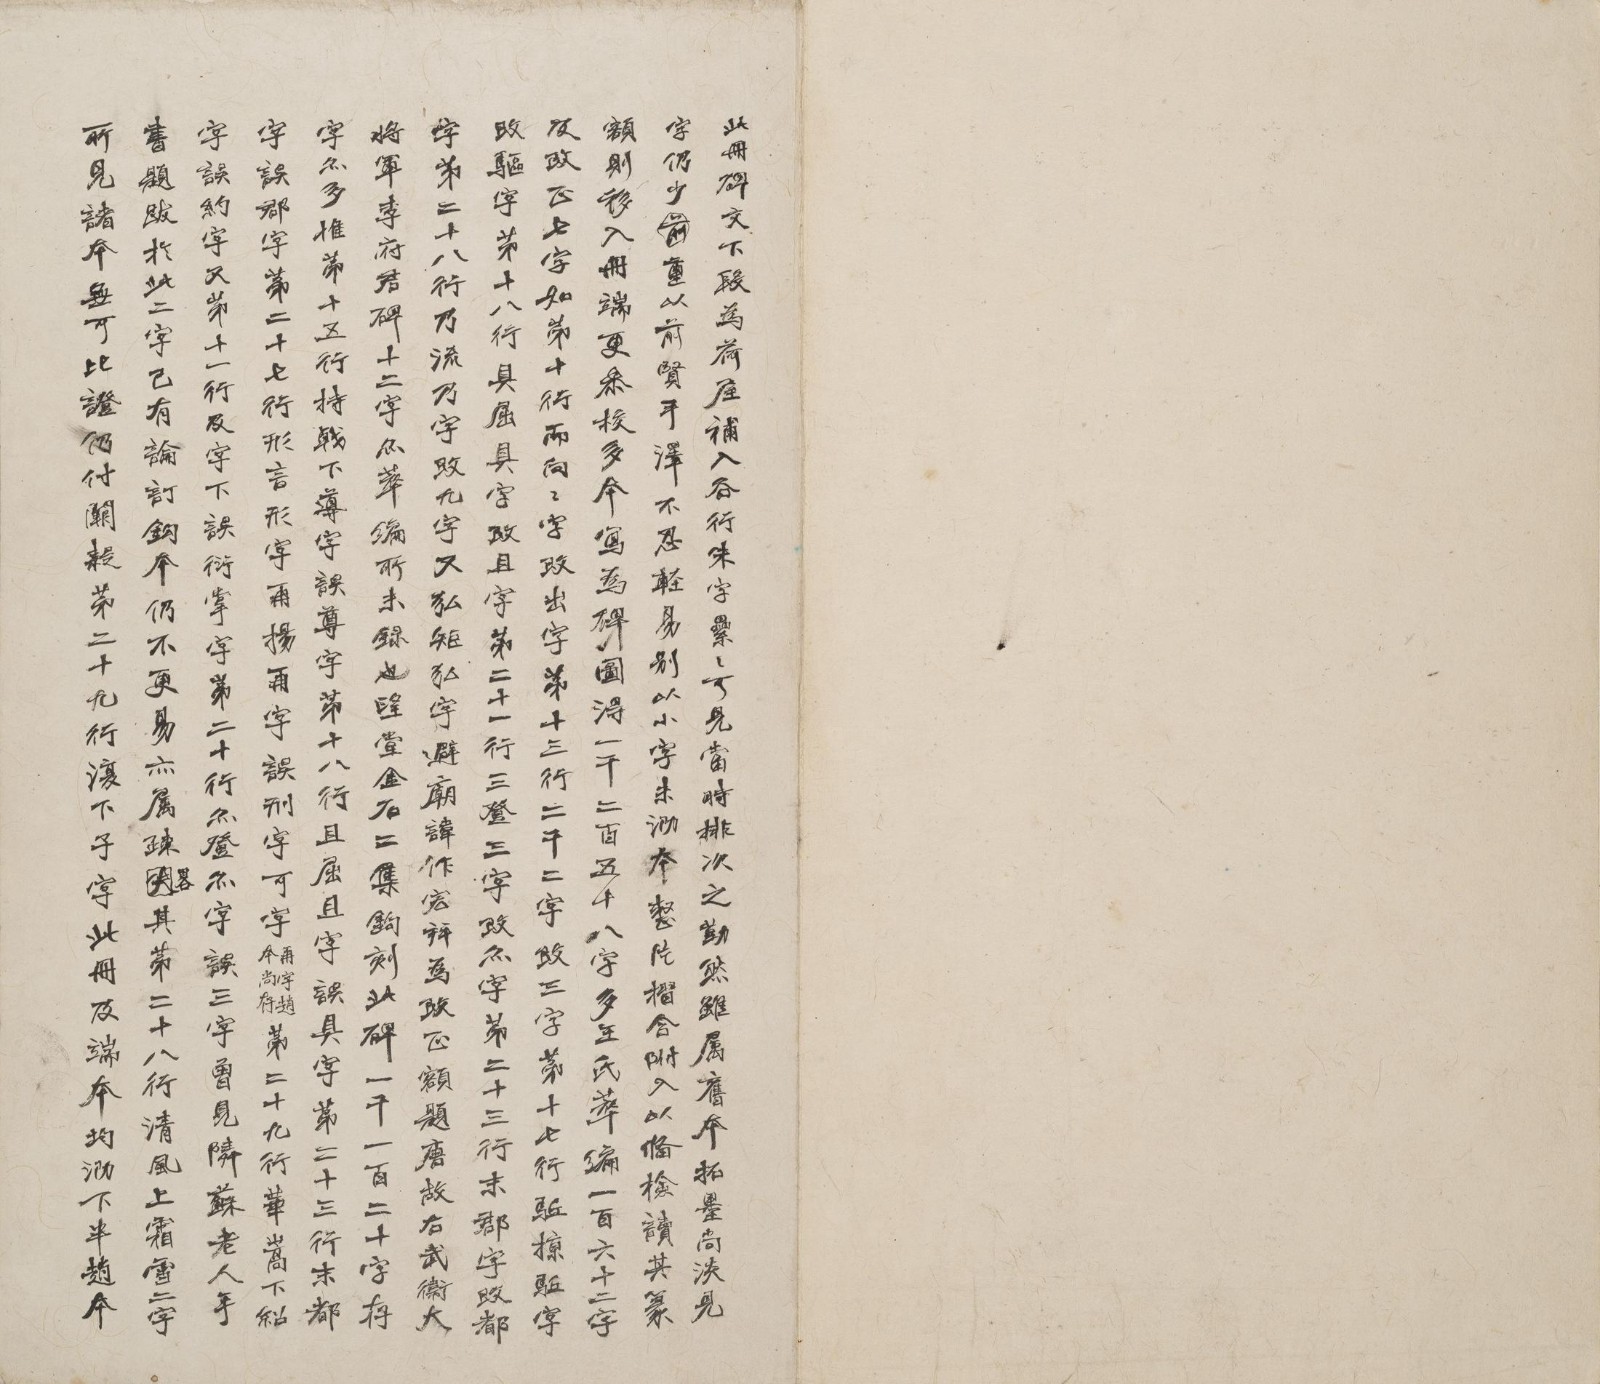 此冊碑文下段為荷屋補入各行朱字纍〻可見當時排次之勤然雖属舊本拓墨尚淡見
字仍少前重以前賢手澤不忍輕易别以小字未泐本整片摺合附入以俻檢讀其篆
額則移入冊端更叅校多本寫為碑圖得一千二百五十八字多王氏萃編一百六十二字
及改正七字如第十行而向〻字改出字第十三行二千二字改三字第十七行駈掠駈字
改驅字第十八行具屈具字改且字第二十一行三登三字改尒字第二十三行末郡字改都
字第二十八行乃流乃字改九字又弘矩弘字避廟諱作宏并為改正額題唐故右武衞大
将軍李府君碑十二字尒萃編所未録也陸堂金石二集鈎刻此碑一千一百二十字存
字尒多惟第十五行持戟下導字誤尊字第十八行且屈且字誤具字第二十三行末都
字誤郡字第二十七行形言形字再揚再字誤刑字可字再字趙本尚存第二十九行華嵩下紹
字誤約字又第十一行及字下誤衍掌字第二十行尒登尒字誤三字曾見隣蘇老人手
書題跋於此二字已有論訂鈎本仍不更易亦属疎畧其第二十八行清風上霜雪二字
所見諸本無可比證仍付闕疑第二十九行瀼下子字此冊及端本均泐下半趙本